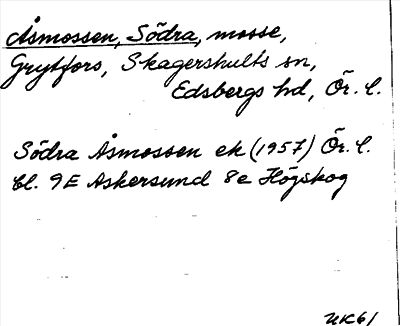 Åsmossen, Södra, mosse,
Grytfors, Skagershults sn,
Edsbergs hd, Ör. l.
Södra Åsmossen ek (1957) Ör. l.
bl. 9E Askersund 8e Högskog
UK61